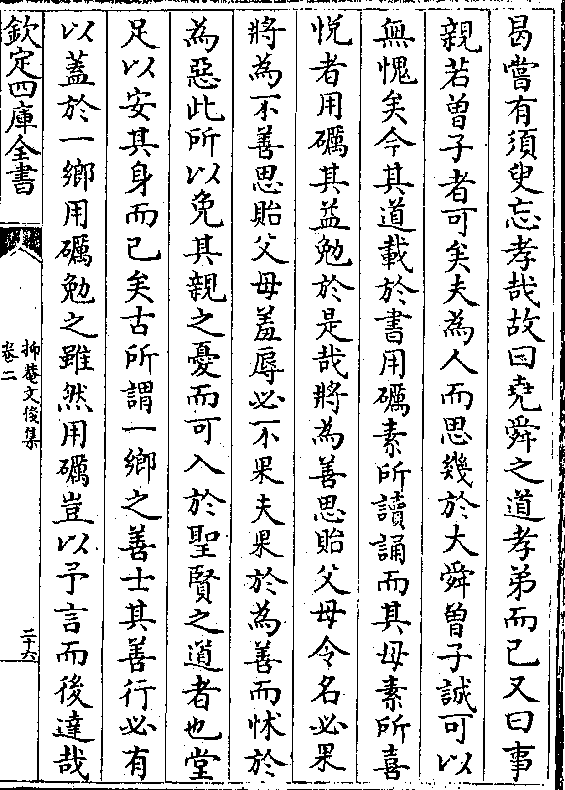 曷嘗有須臾忘孝哉故曰堯舜之道孝弟而已又曰事
親若曾子者可矣夫為人而思幾於大舜曾子誠可以
無愧矣今其道載於書用礪素所讀誦而其母素所喜
悅者用礪其益勉於是哉將為善思貽父母令名必果
將為不善思貽父母羞辱必不果夫果於為善而怵於
為惡此所以免其親之憂而可入於聖賢之道者也堂
足以安其身而已矣古所謂一鄉之善士其善行必有
以蓋於一鄉用礪勉之雖然用礪豈以予言而後達哉
欽定四庫全書
抑菴文後集
卷二
二十六